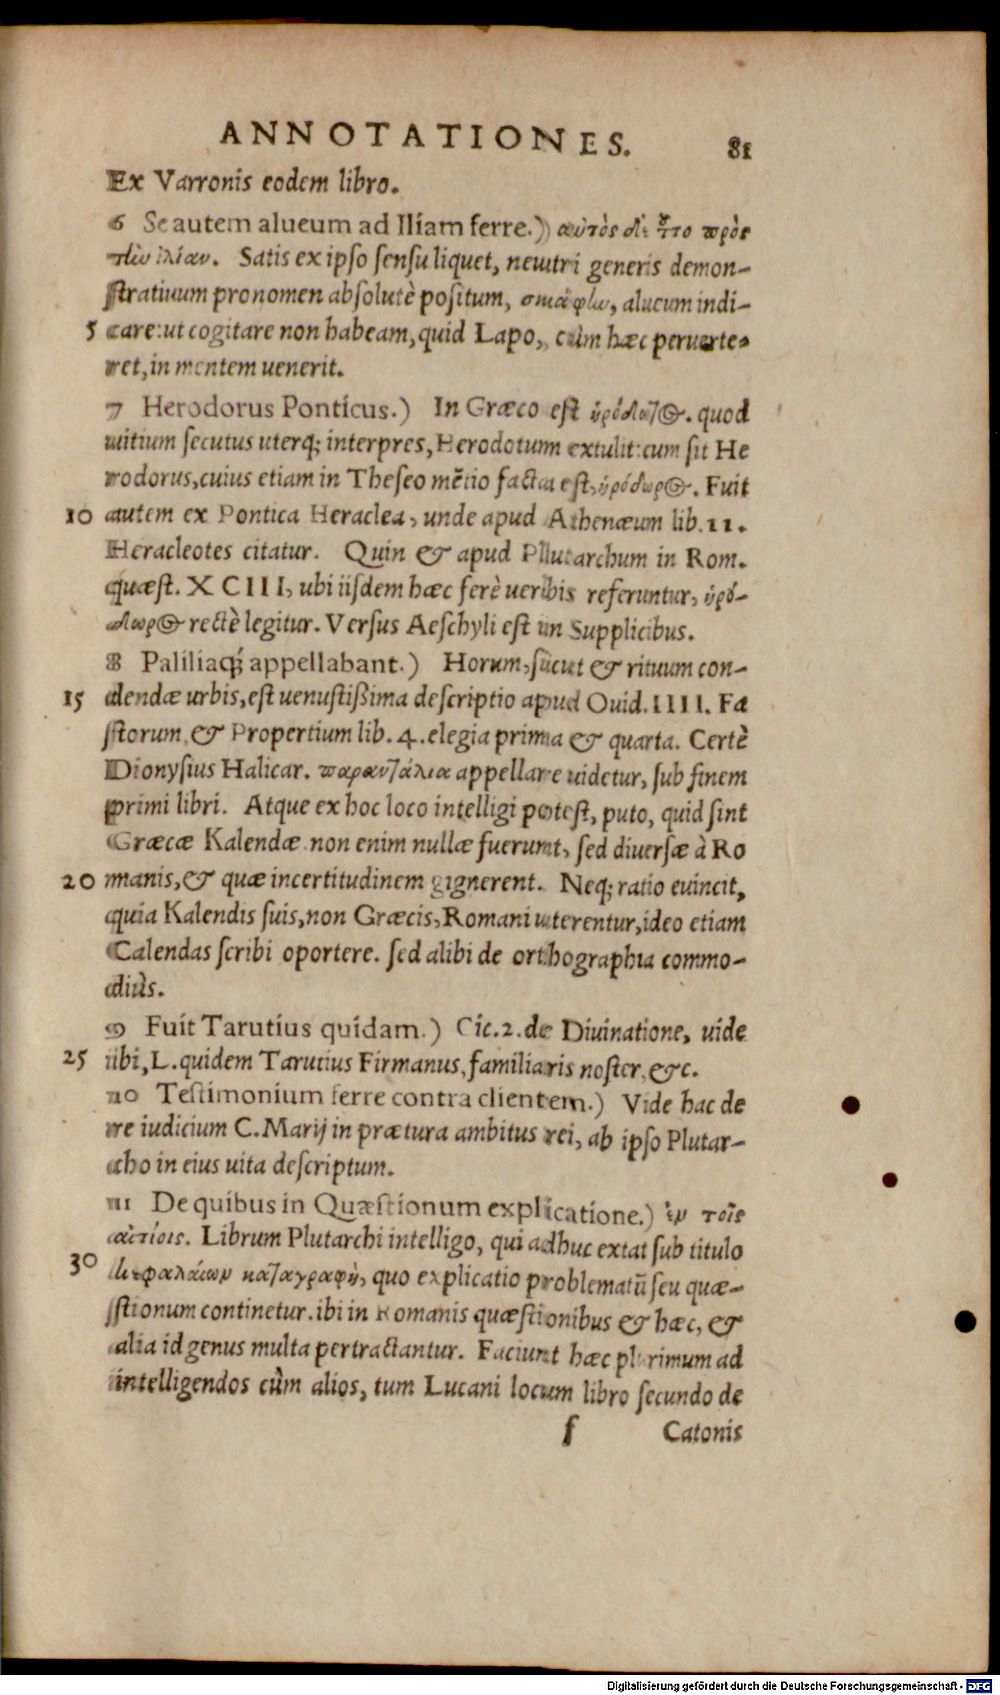 ANNOTATIONES. 81
Ex Varronis eodem libro.
6 Se autem alueum ad Iliam ferre.) αὐτὸς δὲ πρὸς
τὴν ἰλίαν. Satis ex ipso sensu liquet, neutri generis demon-
stratiuum pronomen absolutè positum, σκάφην, alueum indi-
5 care: ut cogitare non habeam, quid Lapo, cùm hæc peruerte-
ret, in mentem uenerit.
7 Herodorus Ponticus.) In Græco est ἡρόδοτος. quod
uitium secutus uterq; interpres, Herodotum extulit: cum sit He
rodorus, cuius etiam in Theseo mẽtio facta est, ἡρόδωρος. Fuit
10 autem ex Pontica Heraclea, unde apud Athenæum lib. 11.
Heracleotes citatur. Quin & apud Plutarchum in Rom.
quæst. XCIII, ubi iisdem hæc ferè uerbis referuntur, ἡρό-
δωρος rectè legitur. Versus Aeschyli est in Supplicibus.
8 Paliliaq; appellabant.) Horum, sicut & rituum con-
15 dendæ urbis, est uenustißima descriptio apud Ouid. IIII. Fa
storum, & Propertium lib. 4. elegia prima & quarta. Certè
Dionysius Halicar. παρεντάλια appellare uidetur, sub finem
primi libri. Atque ex hoc loco intelligi potest, puto, quid sint
Græcæ Kalendæ non enim nullæ fuerunt, sed diuersæ à Ro
20 manis, & quæ incertitudinem gignerent. Neq; ratio euincit,
quia Kalendis suis, non Græcis, Romani uterentur, ideo etiam
Calendas scribi oportere. sed alibi de orthographia commo-
diùs.
9 Fuit Tarutius quidam.) Cic. 2. de Diuinatione, uide
25 ibi, L. quidem Tarutius Firmanus, familiaris noster, &c.
10 Testimonium ferre contra clientem.) Vide hac de
re iudicium C. Marij in prætura ambitus rei, ab ipso Plutar-
cho in eius uita descriptum.
11 De quibus in Quæstionum explicatione.) ἐν τοῖς
αἰτίοις. Librum Plutarchi intelligo, qui adhuc extat sub titulo
30 κεφαλαίων καταγραφὴ, quo explicatio problematũ seu quæ-
stionum continetur. ibi in Romanis quæstionibus & hæc, &
alia id genus multa pertractantur. Faciunt hæc plurimum ad
intelligendos cùm alios, tum Lucani locum libro secundo de
f Catonis
Digitalisierung gefördert durch die Deutsche Forschungsgemeinschaft - DFG